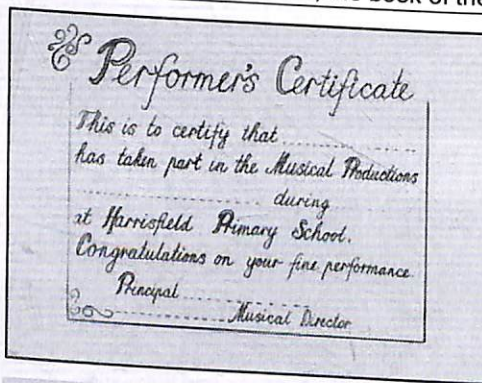 book of the
Performer's Certificate
This is to certify that ....................
has taken part in the Musical Productions
.............................. during
at Harrisfield Primary School.
Congratulations on your fine performance.
Principal ....................
.................... Musical Director